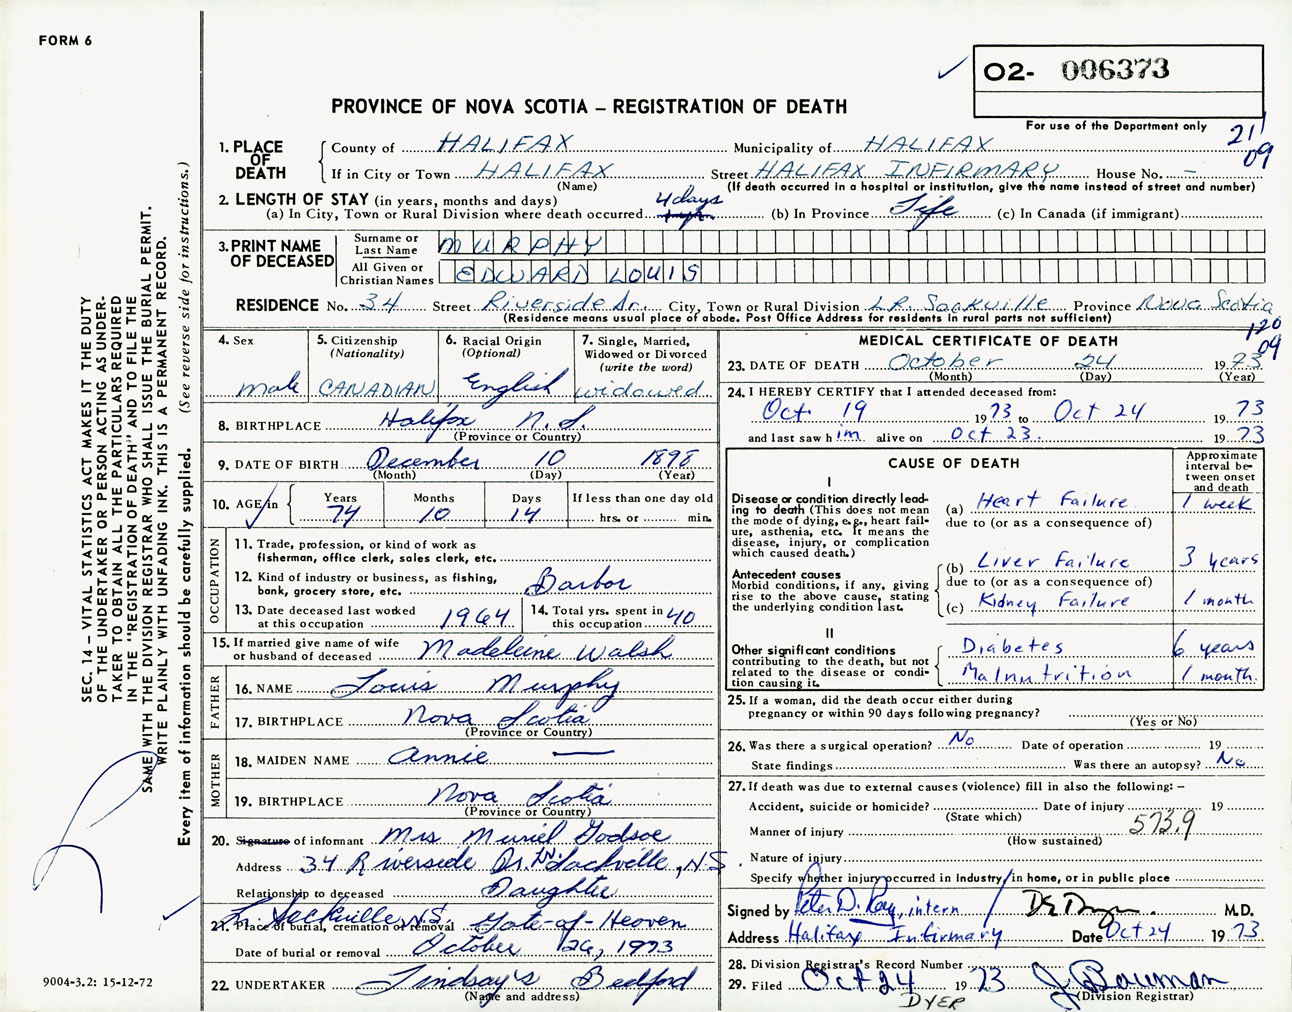 FORM 6
O2- 006373
PROVINCE OF NOVA SCOTIA – REGISTRATION OF DEATH
For use of the Department only
211
09
1. PLACE OF DEATH
County of HALIFAX Municipality of HALIFAX
If in City or Town HALIFAX Street HALIFAX INFIRMARY House No. –
(Name) (If death occurred in a hospital or institution, give the name instead of street and number)
2. LENGTH OF STAY (in years, months and days) 4 days
(a) In City, Town or Rural Division where death occurred (b) In Province Life (c) In Canada (if immigrant)
3. PRINT NAME OF DECEASED
Surname or Last Name MURPHY
All Given or Christian Names EDWARD LOUIS
RESIDENCE No. 34 Street Riverside Dr. City, Town or Rural Division LR. Sackville Province Nova Scotia
(Residence means usual place of abode. Post Office Address for residents in rural parts not sufficient)
120
09
4. Sex male
5. Citizenship (Nationality) CANADIAN
6. Racial Origin (Optional) English
7. Single, Married, Widowed or Divorced (write the word) widowed
8. BIRTHPLACE Halifax N.S.
(Province or Country)
9. DATE OF BIRTH December 10 1898
(Month) (Day) (Year)
10. AGE in Years 74 Months 10 Days 14 If less than one day old hrs. or min.
OCCUPATION
11. Trade, profession, or kind of work as fisherman, office clerk, sales clerk, etc.
12. Kind of industry or business, as fishing, bank, grocery store, etc. Barbor
13. Date deceased last worked at this occupation 1964
14. Total yrs. spent in this occupation 40
15. If married give name of wife or husband of deceased Madeleine Walsh
FATHER
16. NAME Louis Murphy
17. BIRTHPLACE Nova Scotia
(Province or Country)
MOTHER
18. MAIDEN NAME Annie —
19. BIRTHPLACE Nova Scotia
(Province or Country)
20. Signature of informant Mrs Muriel Godsoe
Address 34 Riverside Dr. LW. Sackville, N.S.
Relationship to deceased Daughter
Lr. Sackville N.S.
21. Place of burial, cremation or removal Gate-of-Heaven
Date of burial or removal October 26, 1973
22. UNDERTAKER Lindsay's Bedford
(Name and address)
MEDICAL CERTIFICATE OF DEATH
23. DATE OF DEATH October 24 1973
(Month) (Day) (Year)
24. I HEREBY CERTIFY that I attended deceased from:
Oct. 19 1973 to Oct 24 1973
and last saw him alive on Oct 23. 1973
CAUSE OF DEATH
Approximate interval between onset and death
I
Disease or condition directly leading to death (This does not mean the mode of dying, e.g., heart failure, asthenia, etc. It means the disease, injury, or complication which caused death.)
(a) Heart Failure 1 week
due to (or as a consequence of)
Antecedent causes
Morbid conditions, if any, giving rise to the above cause, stating the underlying condition last.
(b) Liver Failure 3 years
due to (or as a consequence of)
(c) Kidney Failure 1 month
II
Other significant conditions contributing to the death, but not related to the disease or condition causing it.
Diabetes 6 years
Malnutrition 1 month.
25. If a woman, did the death occur either during pregnancy or within 90 days following pregnancy?
(Yes or No)
26. Was there a surgical operation? No Date of operation 19
State findings Was there an autopsy? No
27. If death was due to external causes (violence) fill in also the following: –
Accident, suicide or homicide? Date of injury 19
(State which)
Manner of injury 573.9
(How sustained)
Nature of injury
Specify whether injury occurred in Industry, in home, or in public place
Signed by Peter D. Roy, intern / M.D.
Address Halifax Infirmary Date Oct 24 1973
28. Division Registrar's Record Number
29. Filed Oct 24 1973 J. Bowman
DYER (Division Registrar)
SEC. 14 – VITAL STATISTICS ACT MAKES IT THE DUTY
OF THE UNDERTAKER OR PERSON ACTING AS UNDER-
TAKER TO OBTAIN ALL THE PARTICULARS REQUIRED
IN THE "REGISTRATION OF DEATH" AND TO FILE THE
SAME WITH THE DIVISION REGISTRAR WHO SHALL ISSUE THE BURIAL PERMIT.
WRITE PLAINLY WITH UNFADING INK. THIS IS A PERMANENT RECORD.
Every item of information should be carefully supplied. (See reverse side for instructions.)
9004-3.2: 15-12-72